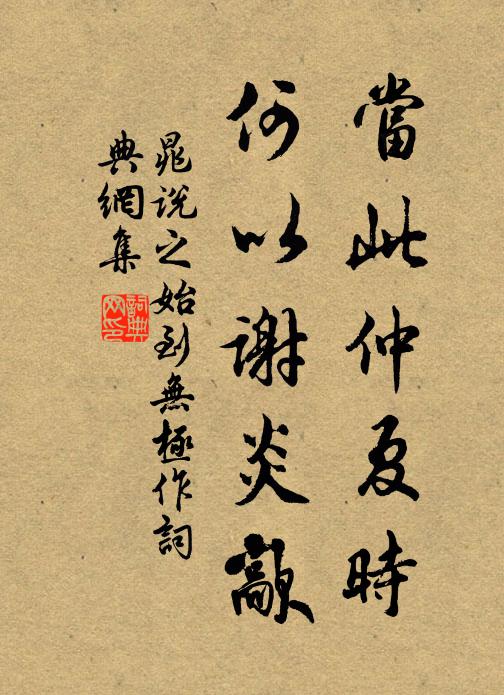 當此仲夏時
何以謝炎歊
晁說之始到無極作詞
典網集
詞典網印